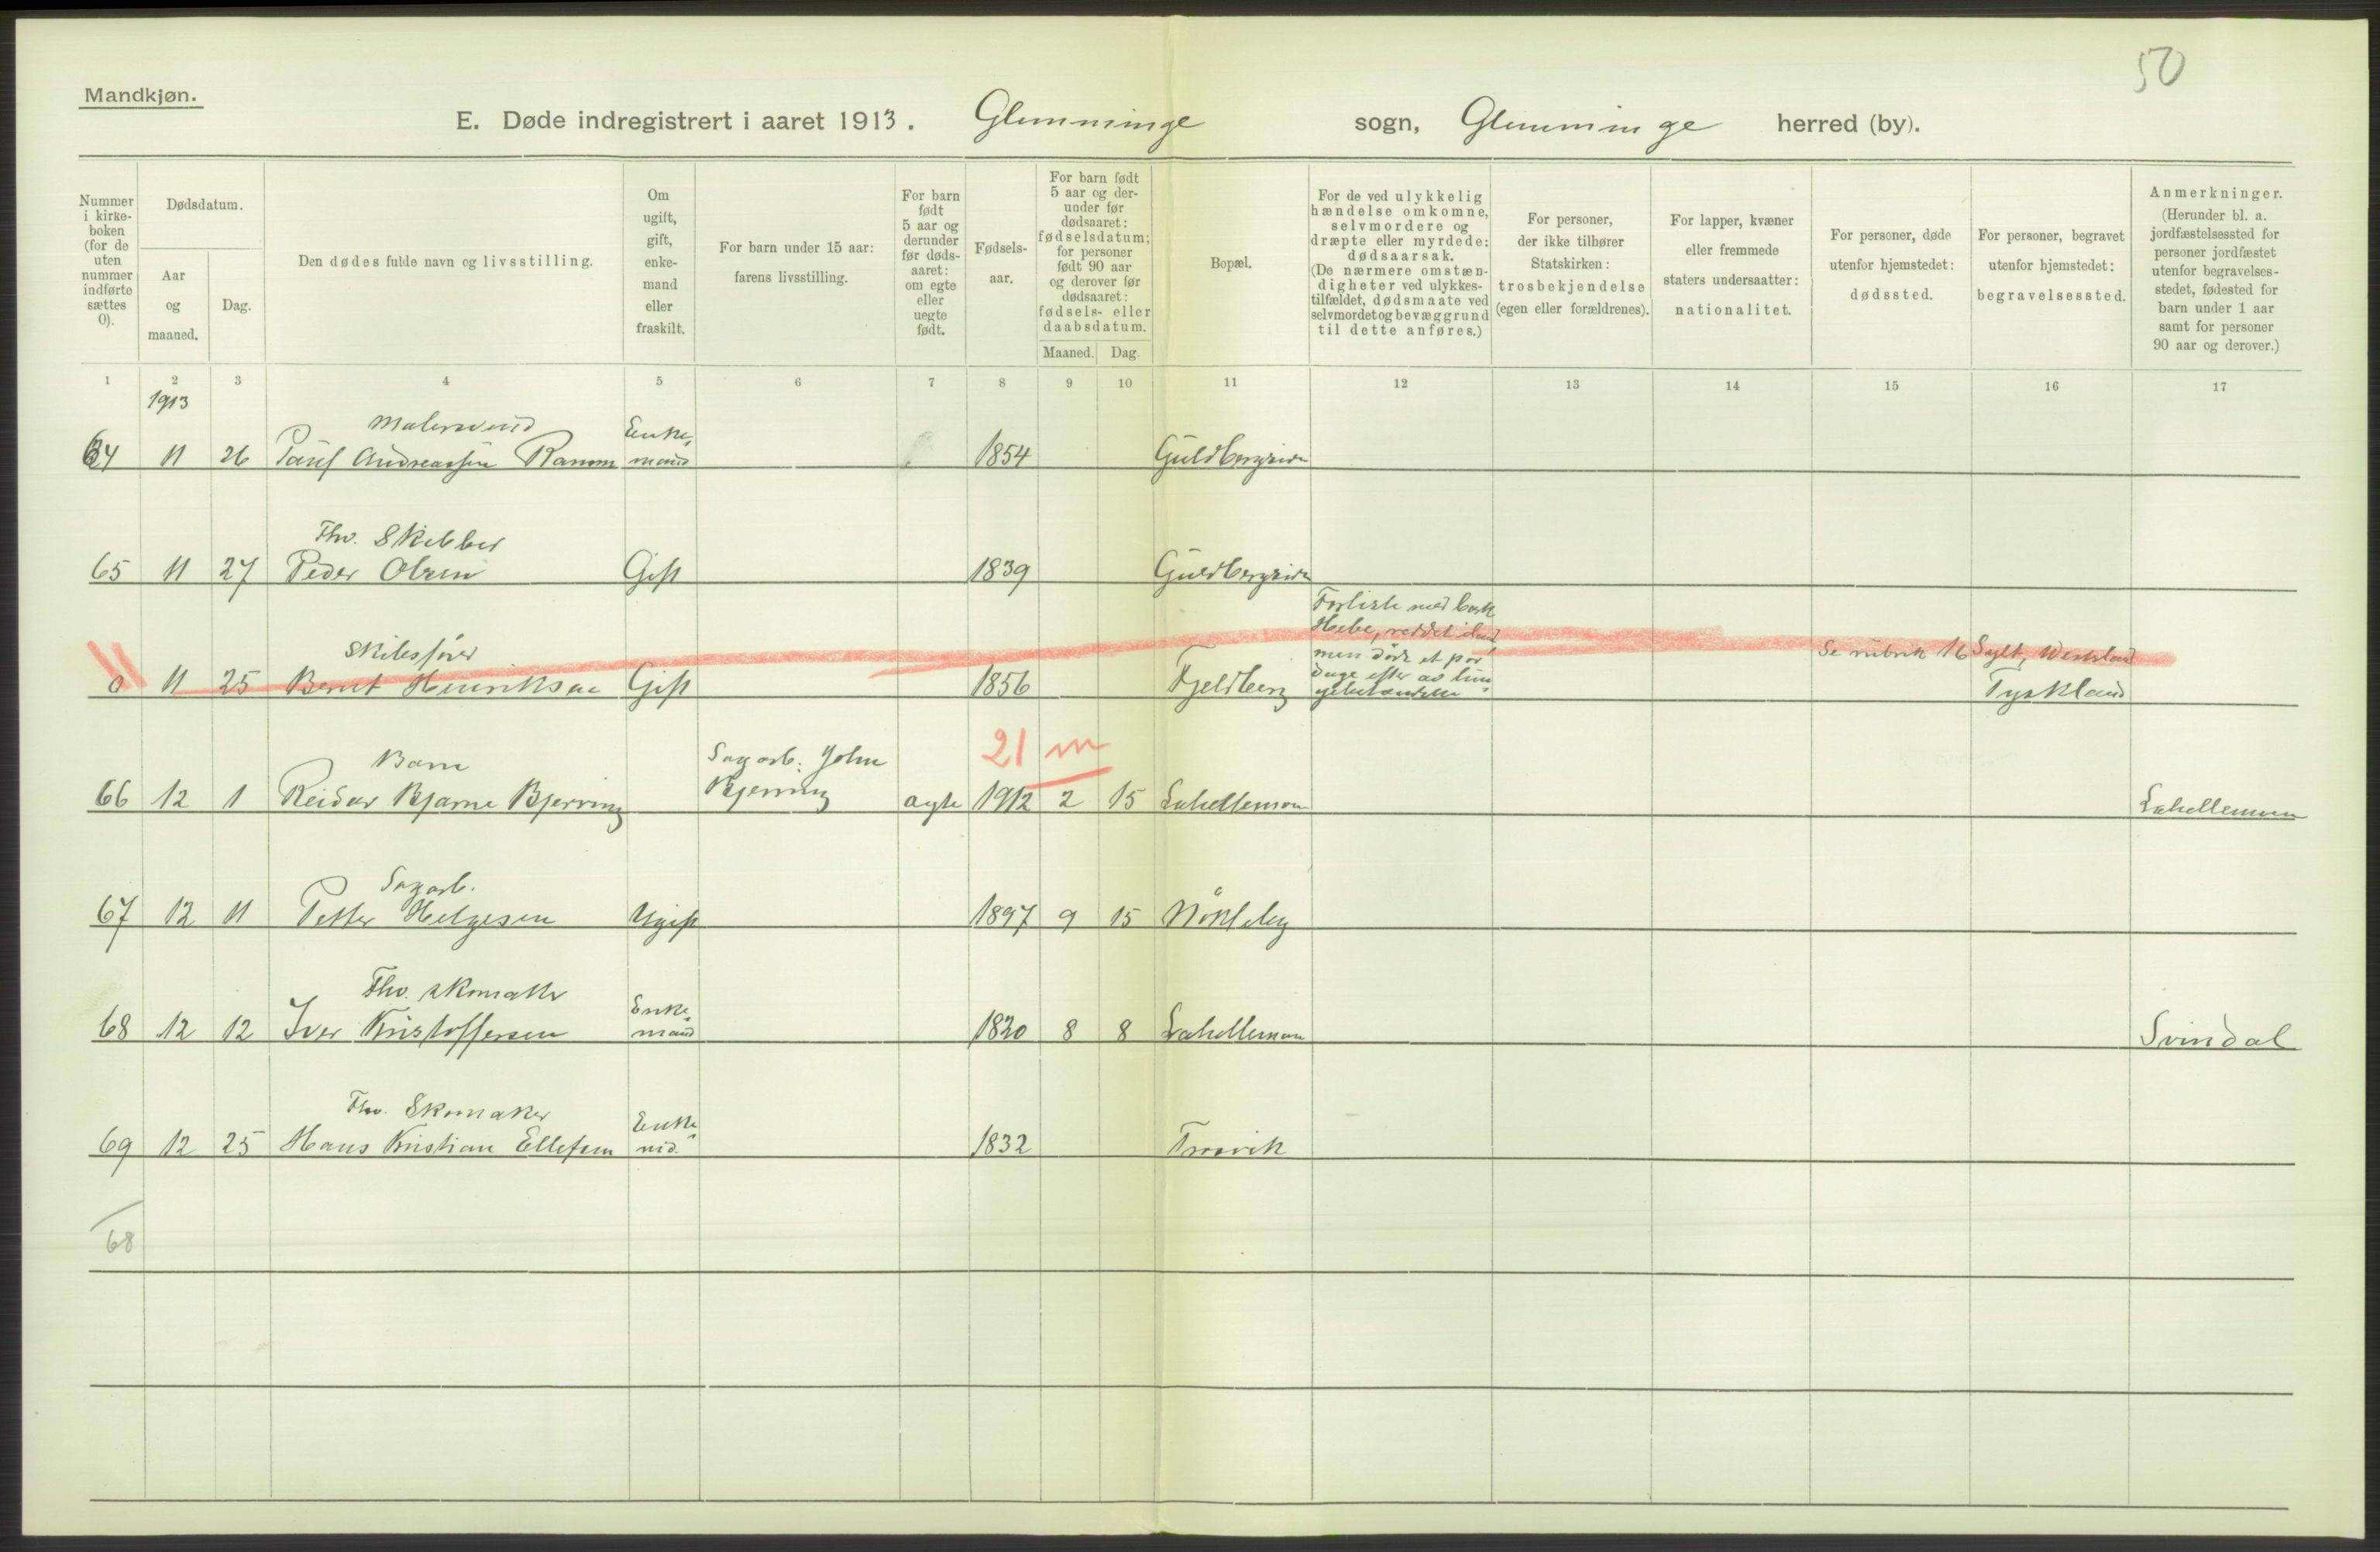 50
Mandkjøn.
E. Døde indregistrert i aaret 1913. Glemminge sogn, Glemminge herred (by).
Nummer i kirke- boken (for de uten nummer indførte sættes 0).
Dødsdatum.
Aar og maaned.
Dag.
Den dødes fulde navn og livsstilling.
Om ugift, gift, enke- mand eller fraskilt.
For barn under 15 aar: farens livsstilling.
For barn født 5 aar og derunder før døds- aaret: om egte eller uegte født.
Fødsels- aar.
For barn født 5 aar og der- under før dødsaaret: fødselsdatum; for personer født 90 aar og derover før dødsaaret: fødsels- eller daabsdatum.
Maaned. Dag.
Bopæl.
For de ved ulykkelig hændelse omkomne, selvmordere og dræpte eller myrdede: dødsaarsak. (De nærmere omstæn- digheter ved ulykkes- tilfældet, dødsmaate ved selvmordet og bevæggrund til dette anføres.)
For personer, der ikke tilhører Statskirken: trosbekjendelse (egen eller forældrenes).
For lapper, kvæner eller fremmede staters undersaatter: nationalitet.
For personer, døde utenfor hjemstedet: dødssted.
For personer, begravet utenfor hjemstedet: begravelsessted.
Anmerkninger. (Herunder bl. a. jordfæstelsessted for personer jordfæstet utenfor begravelses- stedet, fødested for barn under 1 aar samt for personer 90 aar og derover.)
1 2 3 4 5 6 7 8 9 10 11 12 13 14 15 16 17
1913
Malersvend Enke-
64 11 26 Paul Andreassen Ramm mand 1854
Fhv. Skibber
65 11 27 Peder Olsen Gift 1839
Forliste med bark
Hebe, reddet iland
Skibsfører men døde et par Se rubrik 16 Sylt, Westerland
dage efter av lun-
0 11 25 Bernt Henriksen Gift 1856 Fjeldberg gebetændelse Tyskland
21 m
Barn Sagarb. John
66 12 1 Reidar Bjarne Bjerring Bjerring ægte 1912 2 15 Lahellemoen Lahellemoen
Sagarb.
67 12 11 Petter Helgesen Ugift 1897 9 15 Nøkleby
Fhv. skomaker Enke-
68 12 12 Iver Kristoffersen mand 1820 8 8 Lahellemoen Svindal
Fhv. Skomaker Enke-
69 12 25 Hans Kristian Ellefsen md. 1832 Trosvik
68